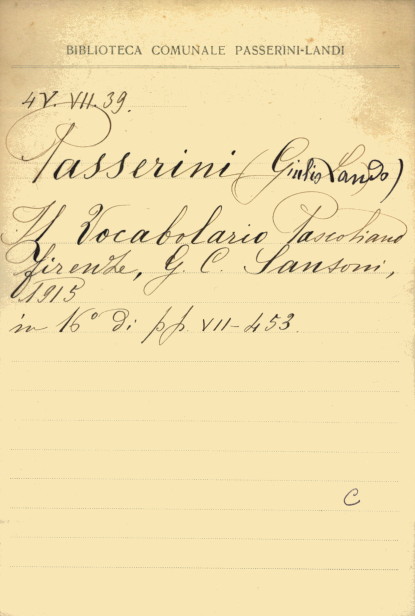 BIBLIOTECA COMUNALE PASSERINI-LANDI
4V. VII. 39.
Passerini (Giulio Lando)
Il Vocabolario Pascoliano
Firenze, G. C. Sansoni,
1915
in 16° di pp. VII-453.
C